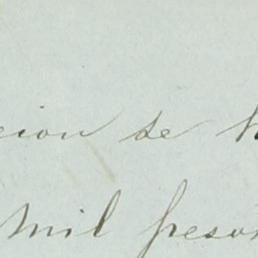 cion de
mil pesos